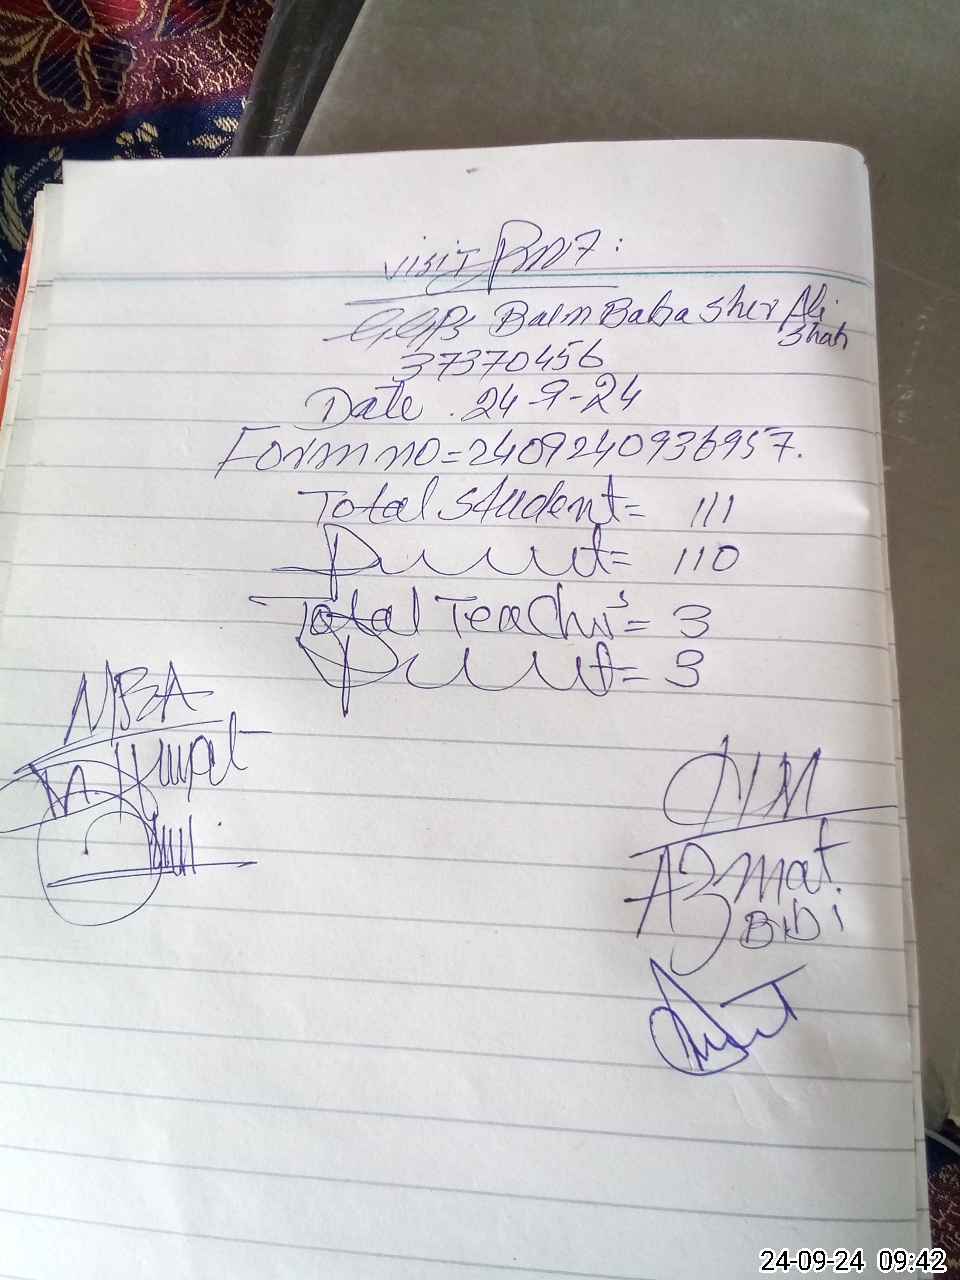 Visit
GGPS Baln Baba Sher Ali
Shah
37370456
Date . 24-9-24
Form no = 2409240936957.
Total student = 111
= 110
Total Teachr's = 3
= 3
MBA
M.
HM
Azmat.
BiBi
24-09-24 09:42